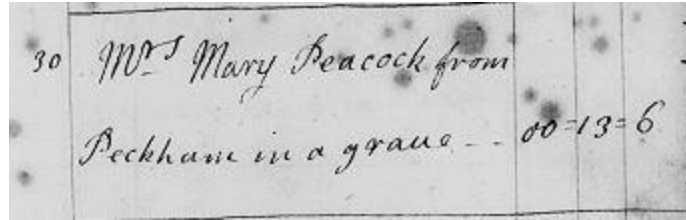 30 Mrs Mary Peacock from
Peckham in a graue -- 00=13=6